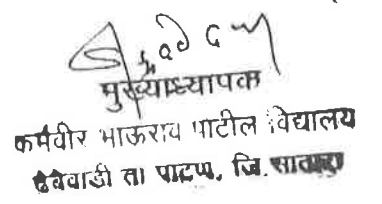 मुख्याध्यापक
कर्मवीर भाऊराव पाटील विद्यालय
ढेबेवाडी ता पाटण, जि. सातारा